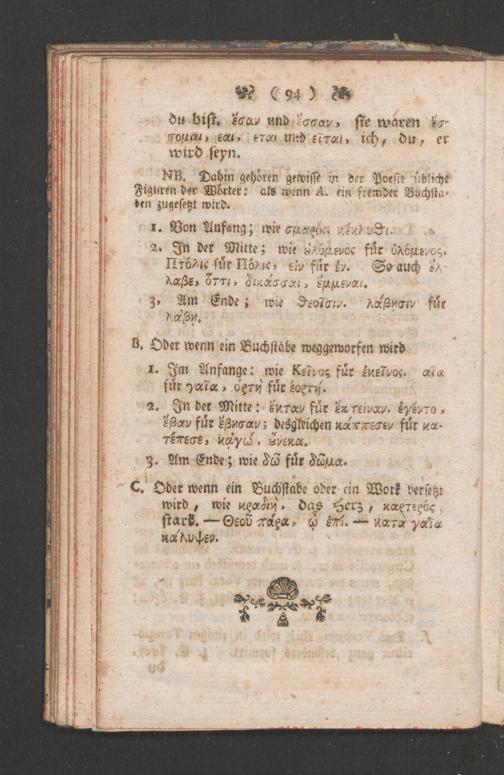 ( 94 )
du bist. ἔσαν und ἔσσαν, sie wären ἔσ-
σομαι, εαι, εται und εῖται, ich, du, er
wird seyn.
NB. Dahin gehören gewisse in der Poesie übliche
Figuren der Wörter: als wenn A. ein fremder Buchsta-
ben zugesetzt wird.
1. Von Anfang; wie σμαρὸς, κέκλυθι.
2. In der Mitte; wie ȣλόμενος für ὀλόμενος.
Πτόλις für Πόλις, εἰν für ἐν. So auch ἔλ-
λαβε, ὅττι, δικάσσαι, ἔμμεναι.
3. Am Ende; wie θεοῖσιν. λάβῃσιν für
λάβῃ.
B. Oder wenn ein Buchstabe weggeworfen wird
1. Im Anfange: wie Κεῖνος für ἐκεῖνος. αἶα
für γαῖα, ὁρτὴ für ἑορτή.
2. In der Mitte: ἔκταν für ἔκτειναν. ἐγέντο,
ἔβαν für ἔβησαν; desgleichen κάππεσεν für κα-
τέπεσε, κᾀγὼ, ȣ̓́νεκα.
3. Am Ende; wie δῶ für δῶμα.
C. Oder wenn ein Buchstabe oder ein Wort versetzt
wird, wie κραδίη, das Herz, καρτερὸς,
stark. — Θεοῦ πάρα, ᾧ ἔπι. — κατα γαῖα
κάλυψεν.